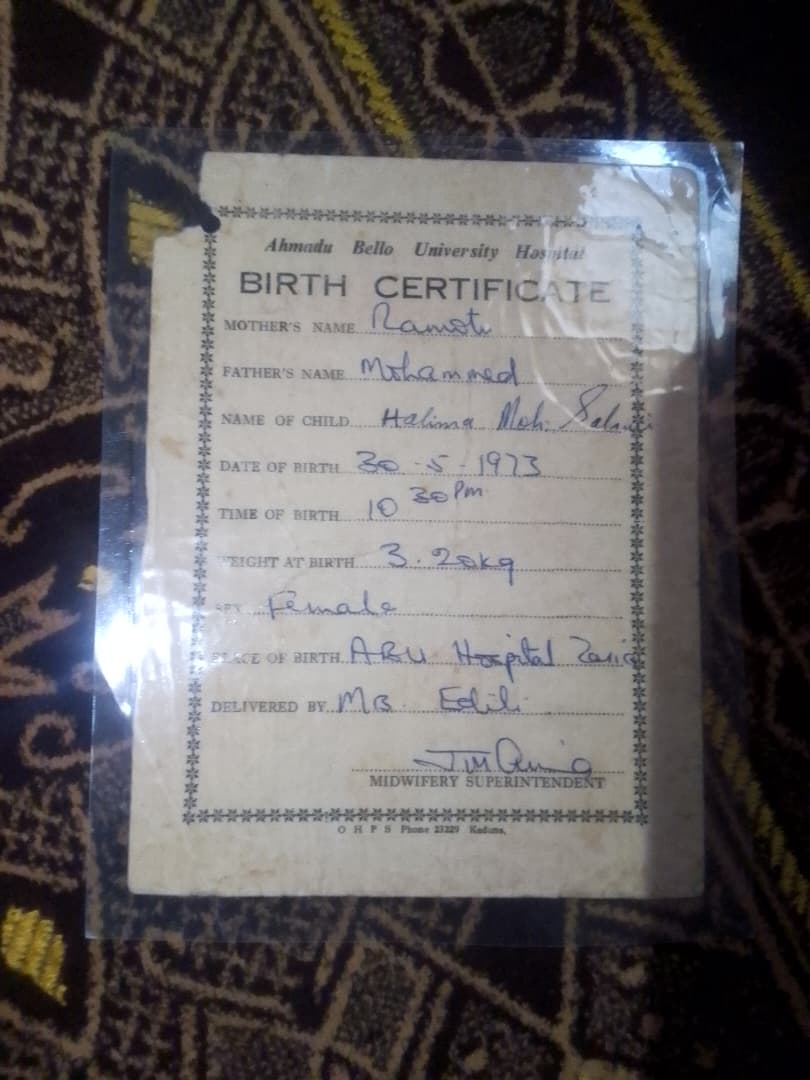 Ahmadu Bello University Hospital
BIRTH CERTIFICATE
MOTHER'S NAME Ramotu
FATHER'S NAME Mohammed
NAME OF CHILD Halima Moh.
DATE OF BIRTH 30-5-1973
TIME OF BIRTH 10 30 Pm
WEIGHT AT BIRTH 3.20kg
SEX Female
PLACE OF BIRTH ABU Hospital Zaria
DELIVERED BY
MIDWIFERY SUPERINTENDENT
O H P S Phone 23229 Kaduna.